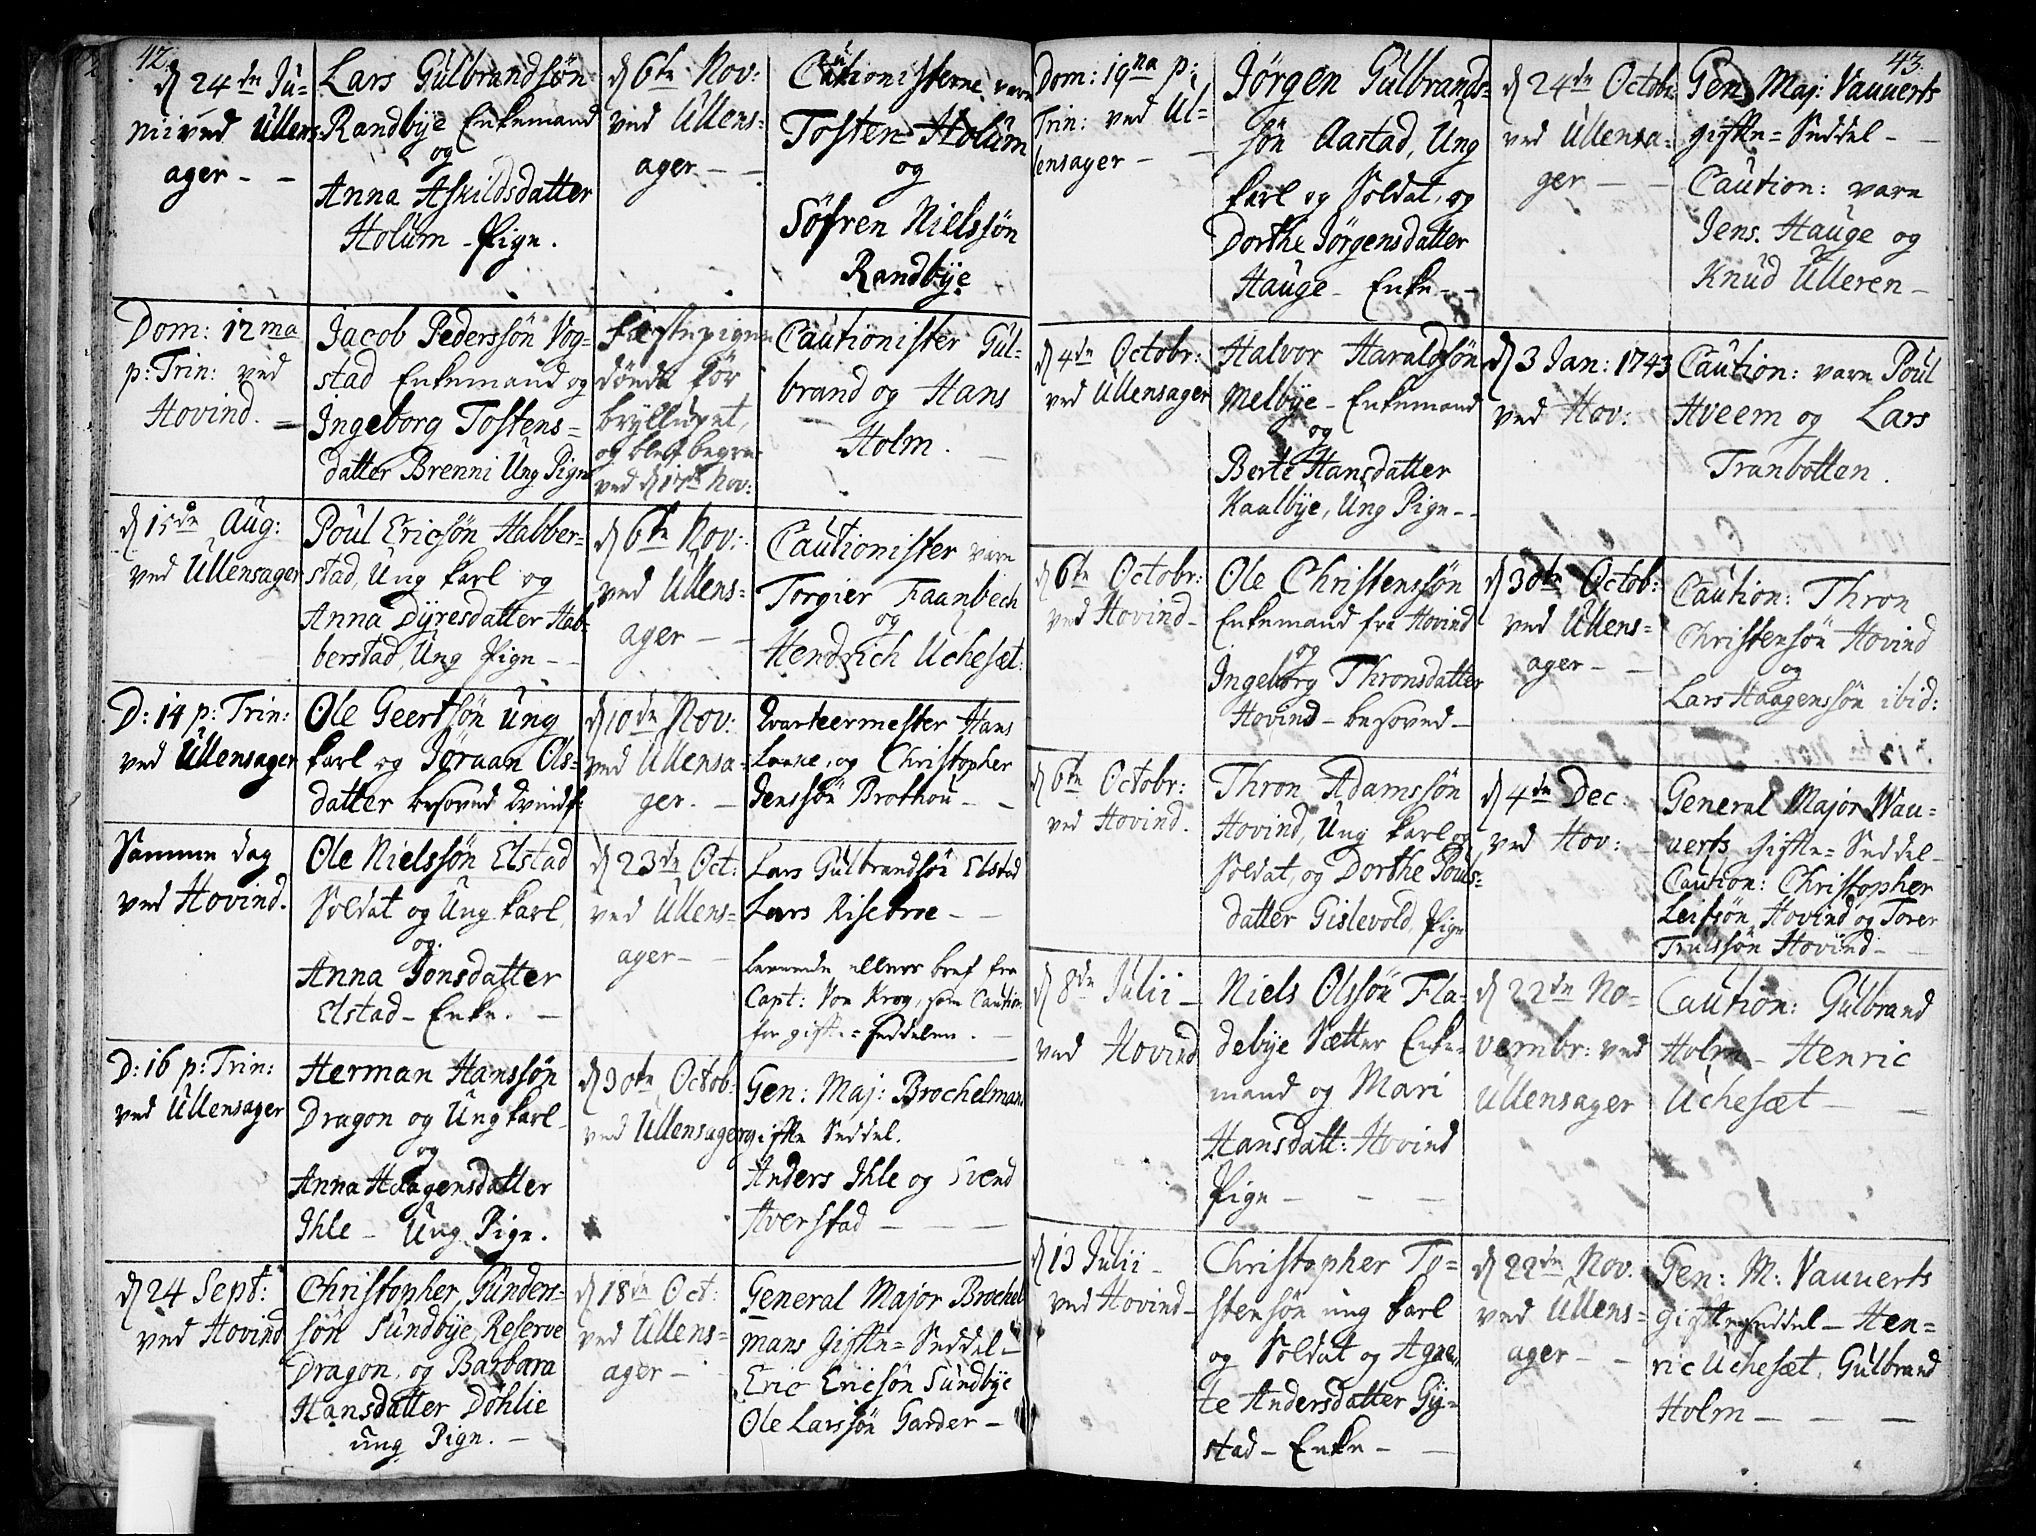 42.
d 24de Ju=
nii ved Ullens
ager - -
Lars Gulbrandsøn
Randbye Enkemand
og
Anna Askildsdatter
Holum - Pige.
d 6te Nov:
ved Ullens=
ager - -
Cautionisterne vare
Tosten Holum
og
Søfren Nielssøn
Randbye
Dom: 12ma
p: Trin: ved
Hovind. -
Jacob Pederssøn Vog=
stad Enkemand og
Ingeborg Tostens=
datter Brenni Ung Pige
Festepigen
døude før
brylluppet,
og blef begra=
ved d 17de Nov:
Cautionister Gul=
brand og Hans
Holm. -
d 15de Aug:
ved Ullensager
Poul Ericsøn Habber=
stad, Ung karl og
Anna Dyresdatter Hab=
berstad, Ung Pige - -
d 6te Nov:
ved Ullens=
ager - -
Cautionister vare
Torgier Faanbech
og
Hendrich Uchesæt:
D: 14 p: Trin:
ved Ullensager
Ole Geertsøn Ung
karl og Jøraan Ols=
datter besoved Qvindf:
d 10de Nov:
ved Ullensa=
ger. -
Qvarteermester Hans
Leene, og Christopher
Jenssøn Brothou - -
Samme dag
ved Hovind.
Ole Nielssøn Elstad
Soldat og Ung karl,
og
Anna Jonsdatter
Elstad - Enke. -
d 23de Oct:
ved Ullens=
ager - -
Lars Gulbrandsøn Elstad
Lars Risebroe - -
Leverede ellers bref fra
Capt: Von Krog, som Caution
for gifte=Seddelen. -
D: 16 p: Trin:
ved Ullensager
Herman Hanssøn
Dragon og Ung karl
og
Anna Haagensdatter
Ihle - Ung Pige.
d 30te Octob:
ved Ullensager
Gen: Maj: Brochelmans
gifte Seddel.
Anders Ihle og Svend
Hverstad - - -
d 24 Sept:
ved Hovind
Christopher Gunders=
søn Sundbye, Reserve
Dragon, og Barbara
Hansdatter Døhlie
ung Pige. -
d 18de Oct:
ved Ullens=
ager - -
General Major Brochel
mans Gifte=Seddel -
Eric Ericsøn Sundbye
Ole Larssøn Garder -
43.
Dom: 19na p:
Trin: ved Ul=
lensager - -
Jørgen Gulbrands=
søn Aastad, Ung
karl og Soldat, og
Dorthe Jørgensdatter
Hauge - Enke - -
d 24de Octobr
ved Ullensa=
ger - -
Gen. Maj: Vauuerts
gifte=Seddel - -
Caution: vare
Jens Hauge og
Knud Ulleren -
d 4de Octobr:
ved Ullensager
Halvor Haraldsøn
Melbye - Enkemand
og
Berte Hansdatter
Kaalbye, Ung Pige - -
d 3 Jan: 1743
ved Hov:
Caution: vare Poul
Hveem og Lars
Tranbotten.
d 6te Octobr:
ved Hovind -
Ole Christenssøn
Enkemand fra Hovind
og
Ingeborg Thronsdatter
Hovind - besoved -
d 30te Octob:
ved Ullens=
ager - -
Caution: Thron
Christensøn Hovind
og
Lars Haagenssøn ibid:
d 6te Octobr:
ved Hovind.
Thron Adamssøn
Hovind, Ung karl og
Soldat, og Dorthe Pouls=
datter Gislevold, Pige
d 4de Dec:
ved Hov:
General Major Wau=
uerts Gifte=Seddel -
Caution: Christopher
Leifsøn Hovind og Torer
Trulssøn Hovind -
d 8de Julii -
ved Hovind
Niels Olssøn Fla=
debye Sætter Enke=
mand og Mari
Hansdatt: Hovind
Pige - - -
d 22de No=
vembr: ved
Ullensager
Caution: Gulbrand
Holm - Henric
Uchesæt - -
d 13 Julii -
ved Hovind -
Christopher To=
stensøn ung karl
og Soldat og Agne=
te Andersdatter Gy=
stad - Enke - -
d 22de Nov.
ved Ullens=
ager - -
Gen: M: Vauuerts
Gifteseddel - Hen=
ric Uchesæt, Gulbrand
Holm - - -